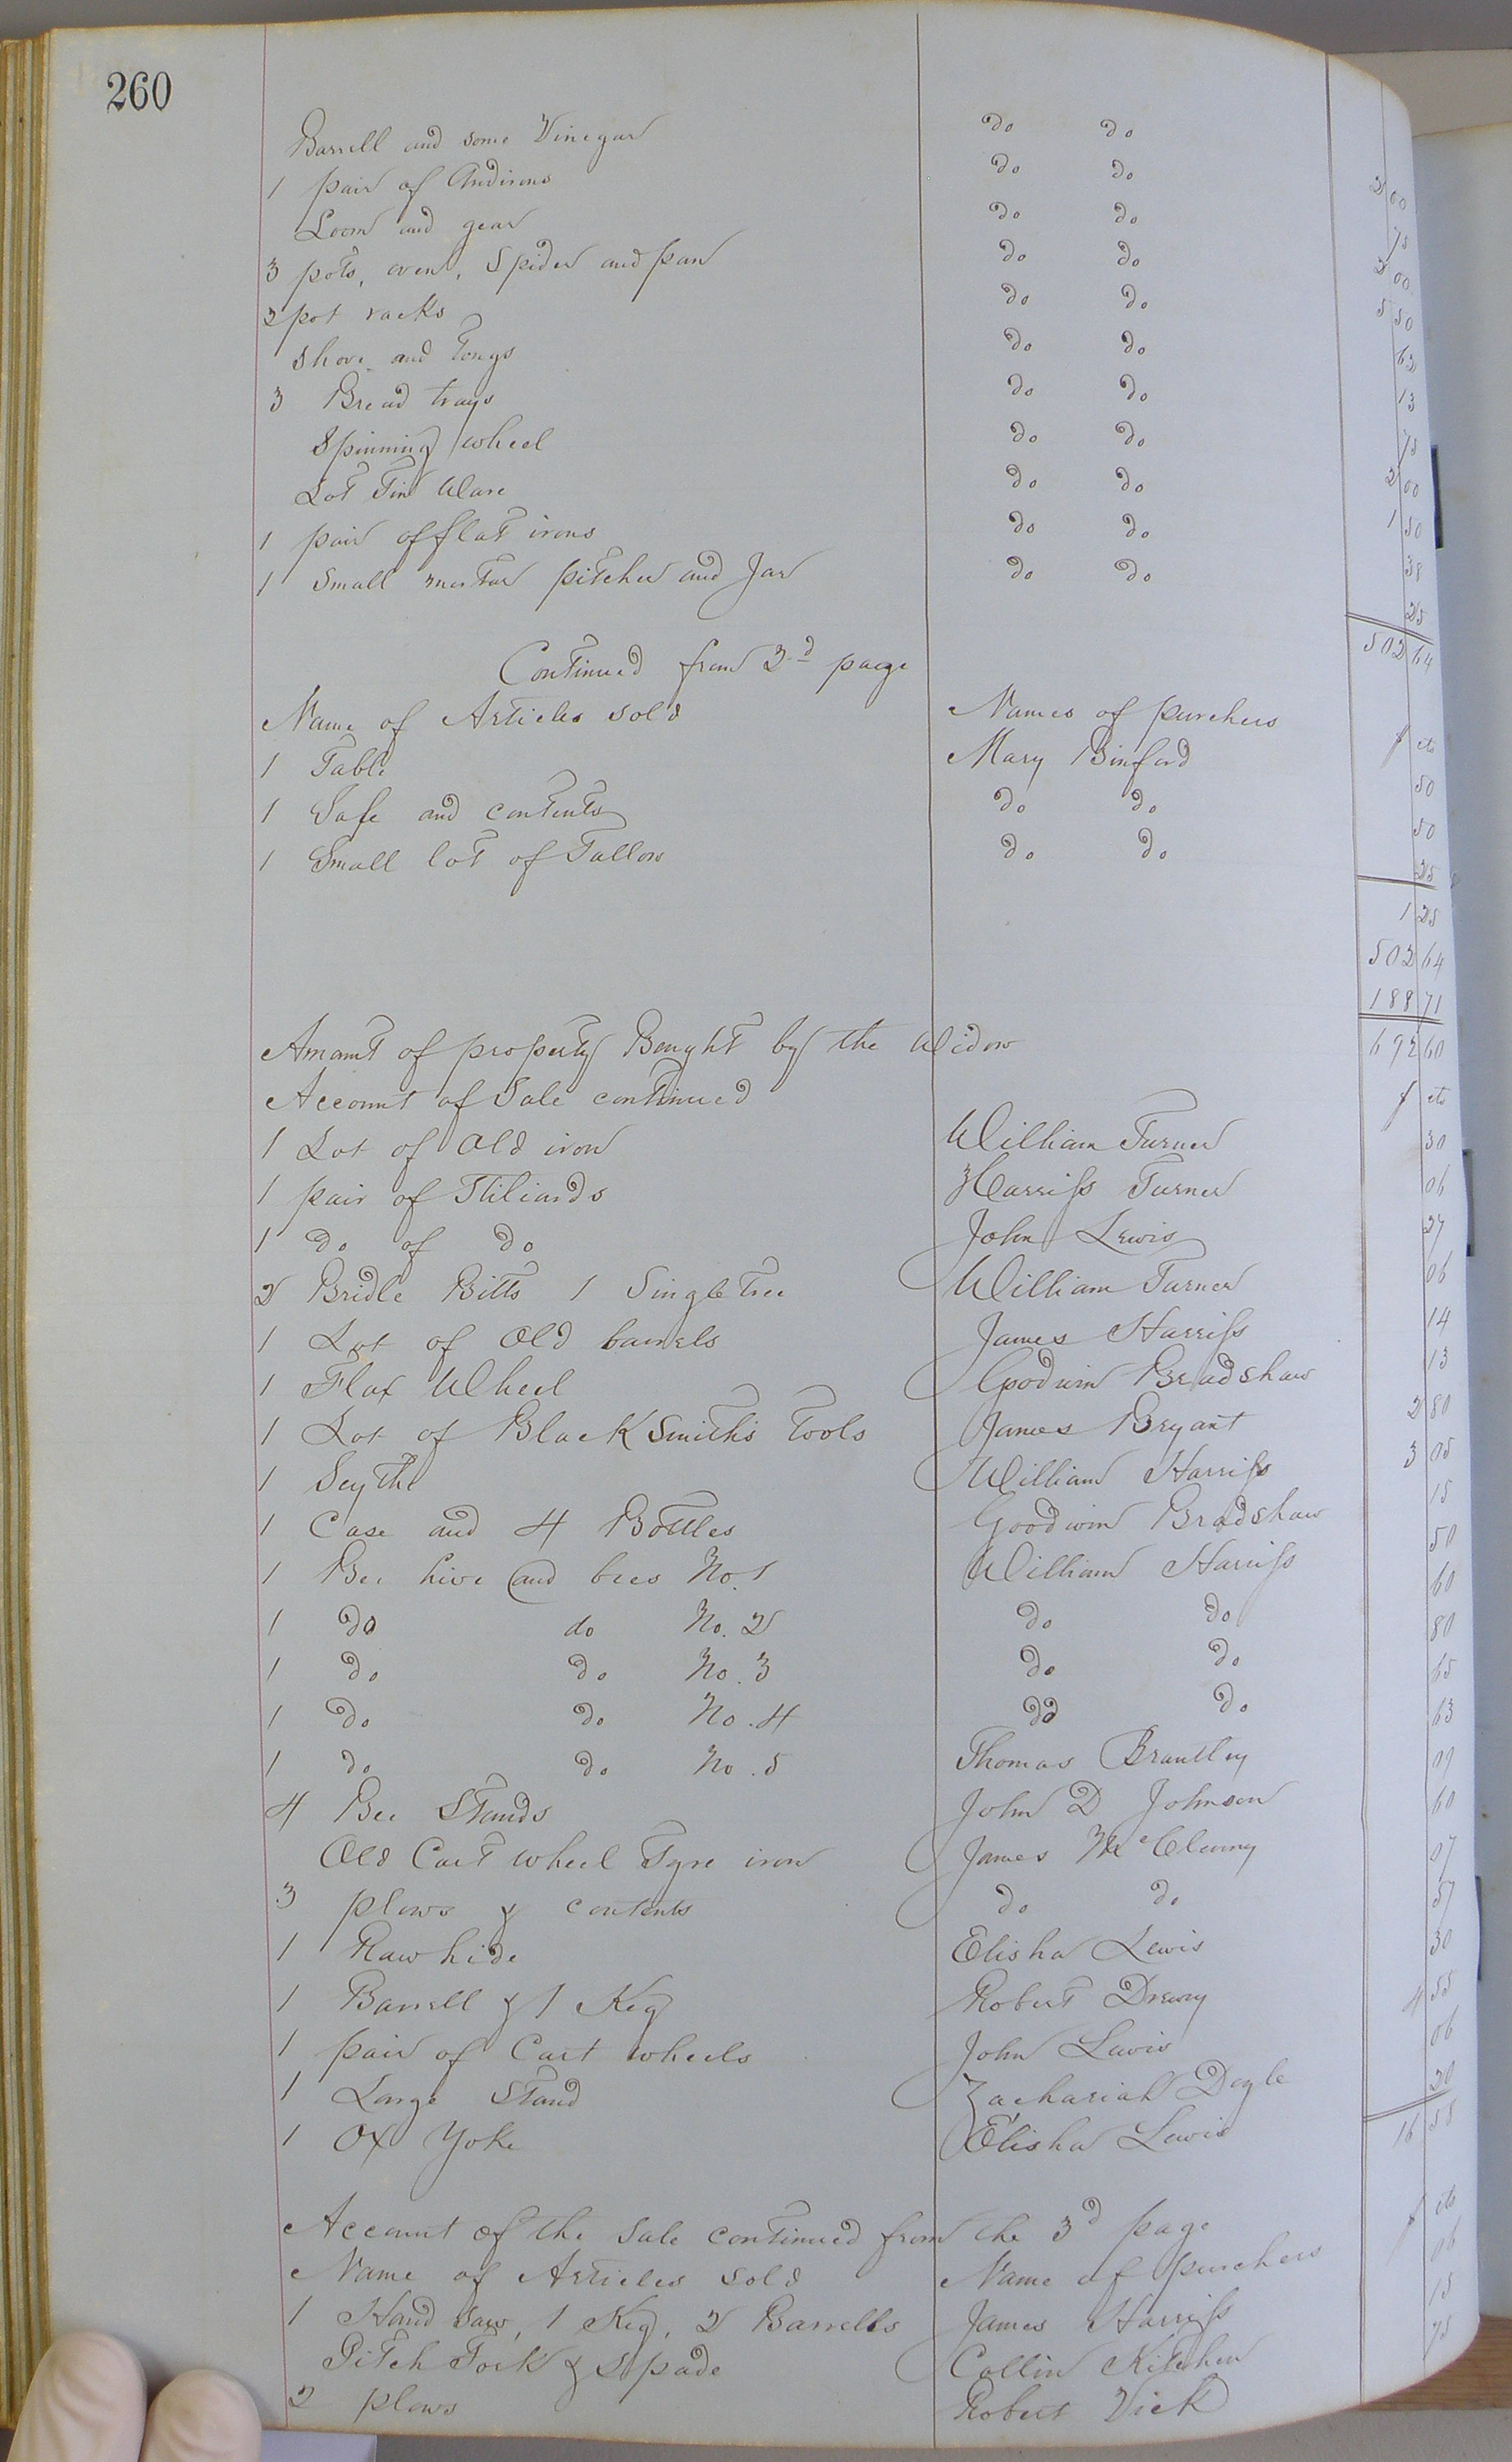 260
Barrell and some Vinegar do do 2 00
1 pair of Andirons do do 75
Loom and gear do do 2 00
3 pots, oven, Spider and pan do do 5 50
2 pot racks do do 63
Shove and Tongs do do 13
3 Bread trays do do 75
Spinning wheel do do 2 00
Lot Tin Ware do do 1 50
1 pair of flat irons do do 38
1 Small mortar pitcher and Jar do do 25
502 64
Continued from 2d page
Name of Articles sold Names of purchers $ cts
1 Table Mary Binford 50
1 Safe and contents do do 50
1 Small lot of Tallow do do 25
1 25
502 64
188 71
Amount of property Bought by the Widow 692 60
Account of Sale continued $ cts
1 Lot of Old iron William Turner 30
1 pair of Stiliards Harriss Turner 06
1 do of do John Lewis 27
2 Bridle Bitts 1 Singletree William Turner 06
1 Lot of Old barrels James Harriss 14
1 Flax Wheel Goodwin Bradshaw 13
1 Lot of Black Smith's Tools James Bryant 2 80
1 Scythe William Harriss 3 05
1 Case and 4 Bottles Goodwin Bradshaw 15
1 Bee hive and bees No. 1 William Harriss 50
1 do do No. 2 do do 60
1 do do No. 3 do do 80
1 do do No. 4 do do 65
1 do do No. 5 Thomas Brantley 63
4 Bee Stands John D Johnson 09
Old Cart wheel Tyre iron James McClenny 60
3 plows & contents do do 07
1 Raw hide Elisha Lewis 57
1 Barrell & 1 Keg Robert Drewry 30
1 pair of Cart wheels John Lewis 4 55
1 Large Stand Zachariah Dogle 06
1 Ox Yoke Elisha Lewis 20
16 58
Account of the Sale continued from the 3d page $ cts
Name of Articles sold Name of purchers
1 Hand Saw, 1 Keg, 2 Barrells James Harriss 06
Pitch Fork & Spade Collin Kitchen 15
2 plows Robert Vick 75